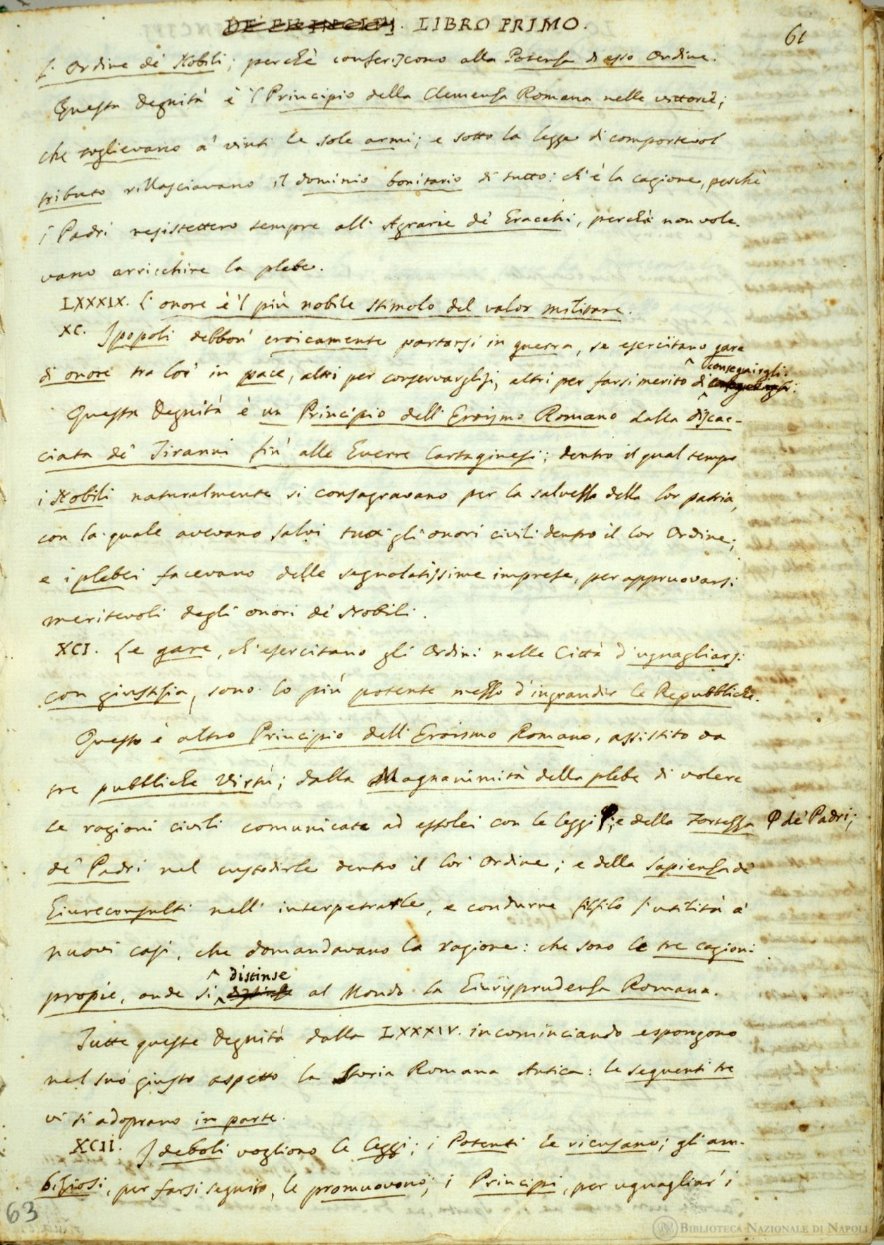 DE' PRINCIPJ. LIBRO PRIMO.
61
l' Ordine de' Nobili; perchè conferiscono alla Potenza di esso Ordine.
Questa Degnità è 'l Principio della Clemenza Romana nelle vittorie;
che toglievano a' vinti le sole armi; e sotto la legge di comportevol
tributo rillasciavano il dominio bonitario di tutto: ch'è la cagione, perchè
i Padri resistettero sempre all' Agrarie de' Gracchi, perchè non vole-
vano arricchire la plebe.
LXXXIX. L' onore è 'l più nobile stimolo del valor militare.
XC. I popoli debbon' eroicamente portarsi in guerra, se esercitano gare
di onore tra lor' in pace, altri per conservarglisi, altri per farsi merito di conseguirgli.
Questa Degnità è un Principio dell' Eroismo Romano dalla discac-
ciata de' Tiranni fin' alle Guerre Cartaginesi; dentro il qual tempo
i Nobili naturalmente si consagravano per la salvezza della lor patria,
con la quale avevano salvi tutti gli onori civili dentro il lor Ordine;
e i plebei facevano delle segnalatissime imprese, per appruovarsi
meritevoli degli onori de' Nobili.
XCI. Le gare, ch'esercitano gli Ordini nelle Città d'uguagliarsi
con giustizia, sono lo più potente mezzo d'ingrandir le Repubbliche.
Questo è altro Principio dell' Eroismo Romano, assistito da
tre pubbliche Virtù; dalla Magnanimità della plebe di volere
le ragioni civili comunicate ad essolei con le leggi ; e della Fortezza de' Padri;
de' Padri nel custodirle dentro il lor Ordine; e della Sapienza de'
Giureconsulti nell' interpetrarle, e condurne fil filo l'utilità a'
nuovi casi, che domandavano la ragione: che sono le tre cagioni
propie, onde si distinse al Mondo la Giurisprudenza Romana.
Tutte queste Degnità dalla LXXXIV. incominciando espongono
nel suo giusto aspetto la Storia Romana Antica: le seguenti tre
vi si adoprano in parte.
XCII. I deboli vogliono le leggi; i Potenti le ricusano; gli am-
biziosi, per farsi seguito, le promuovono; i Principi, per uguagliar' i
63
BIBLIOTECA NAZIONALE DI NAPOLI